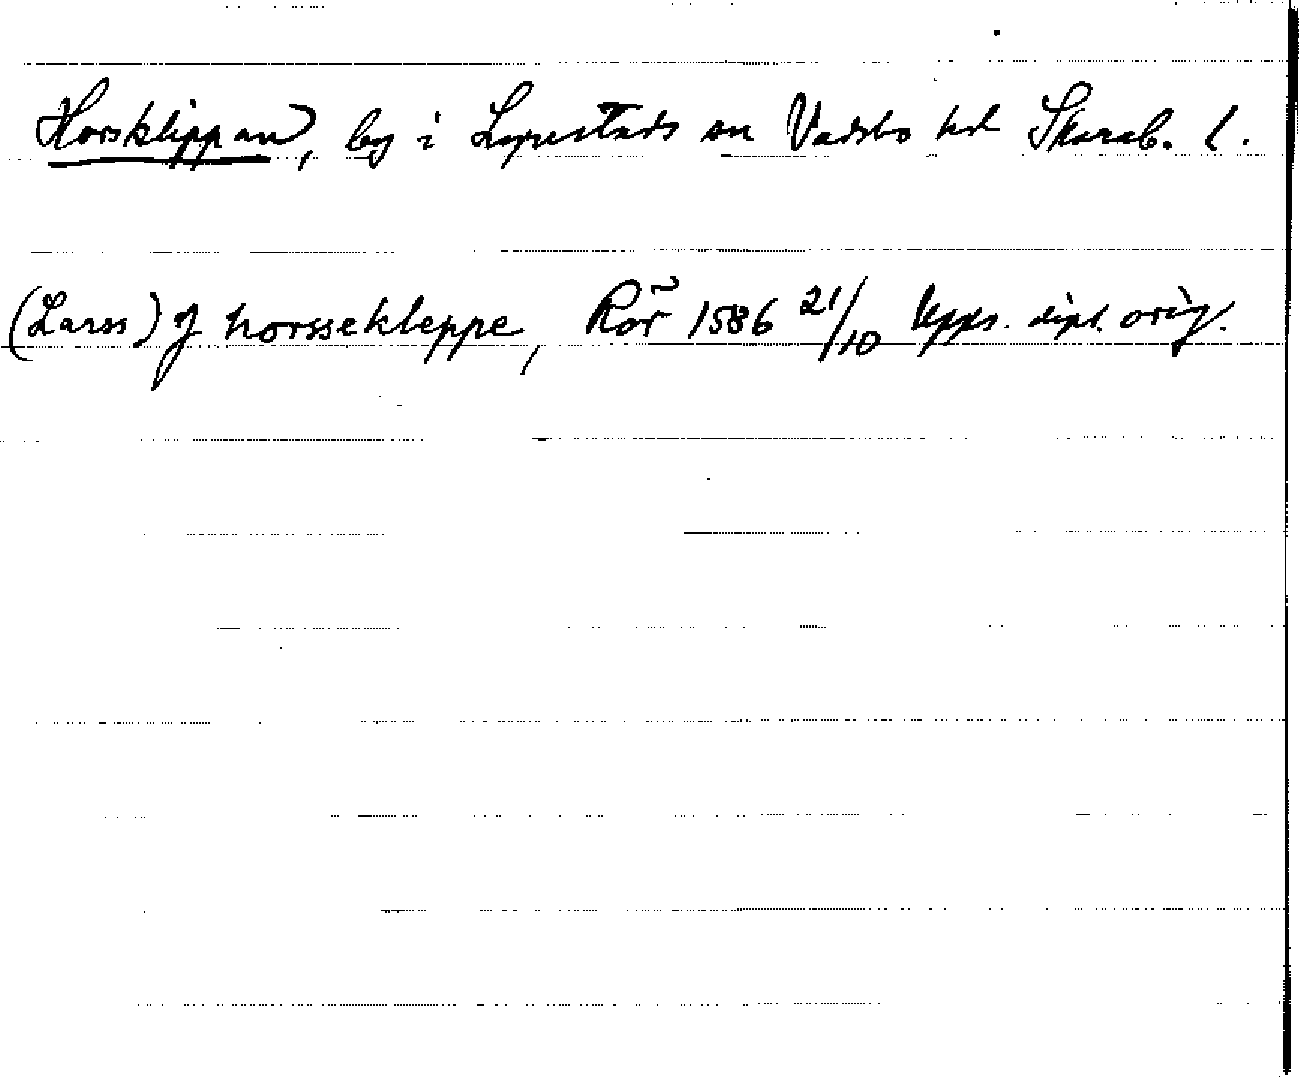 Horsklippan, by i Lyrestads sn Vadsbo hd Skarab. l.
(Larss) J horssekleppe, Rör 1586 21/10 Upps. dipl. orig.